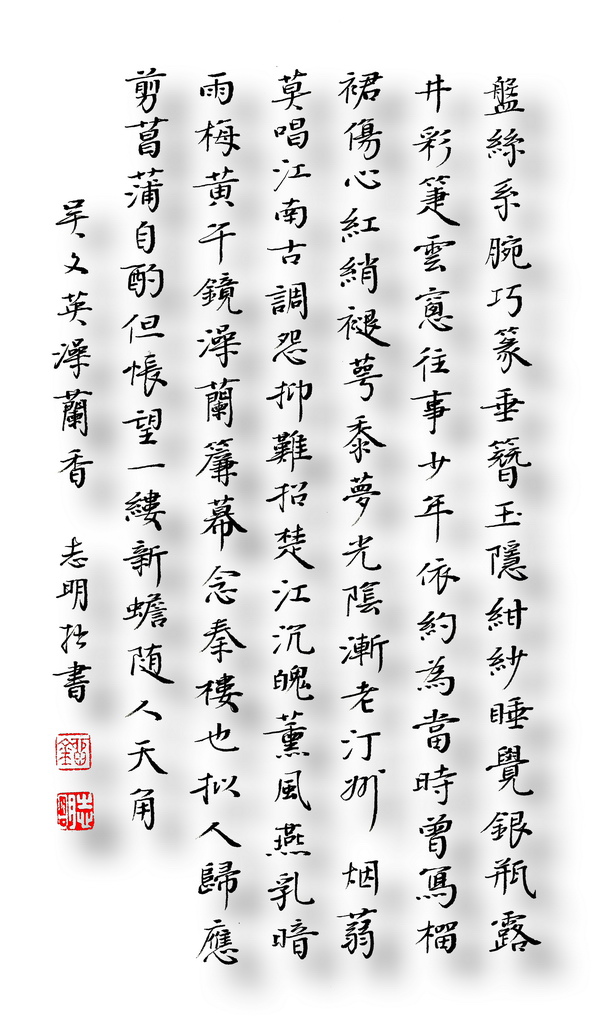 盤絲系腕巧篆垂簪玉隱紺紗睡覺銀瓶露
井彩箑雲窻往事少年依約為當時曾寫榴
裙傷心紅綃褪萼黍夢光陰漸老汀州 烟蒻
莫唱江南古調怨抑難招楚江沉魄薰風燕乳暗
雨梅黃午鏡澡蘭簾幕念秦樓也拟人歸應
剪菖蒲自酌但悵望一縷新蟾随人天角
吴文英澡蘭香 志明拙書